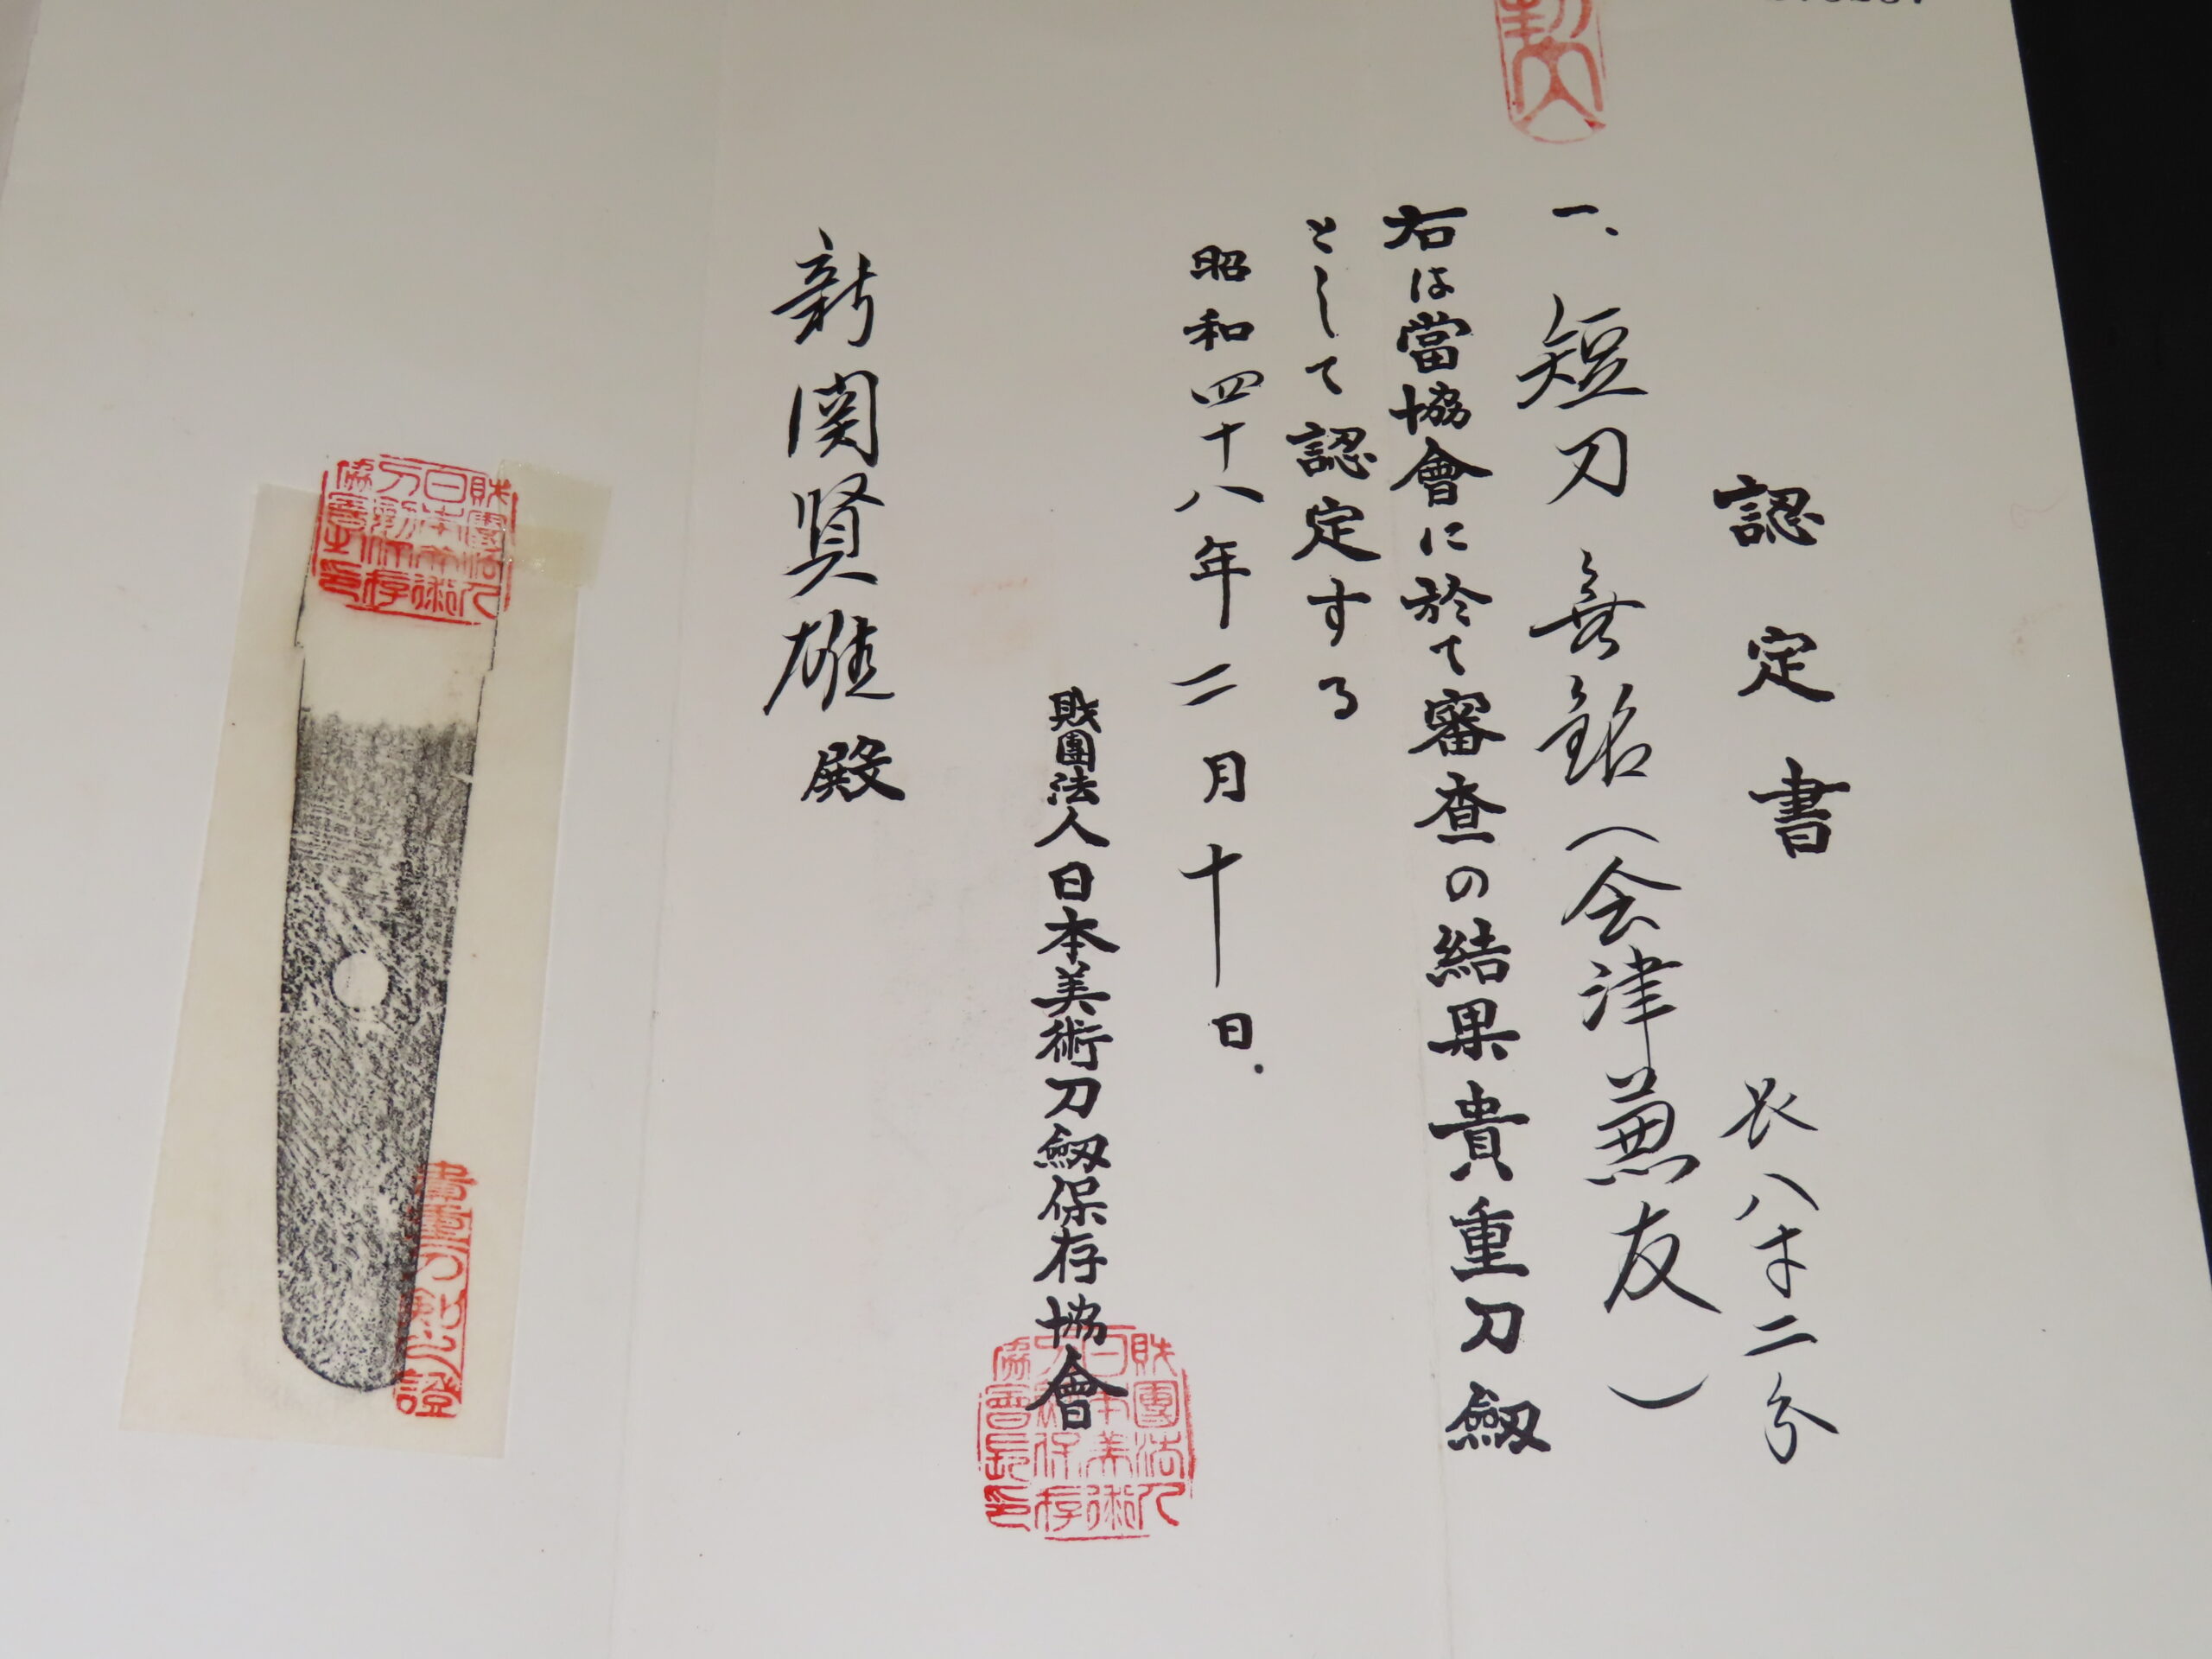 認定書
一、短刀 無銘(会津兼友)
長八寸二分
右は當協會に於て審査の結果貴重刀剱
として認定する
昭和四十八年二月十日
財團法人日本美術刀剱保存協會
財團法人日本美術刀剱保存協會長印
新関賢雄殿
財團法人日本美術刀剱保存協會長印
貴重刀剱之證